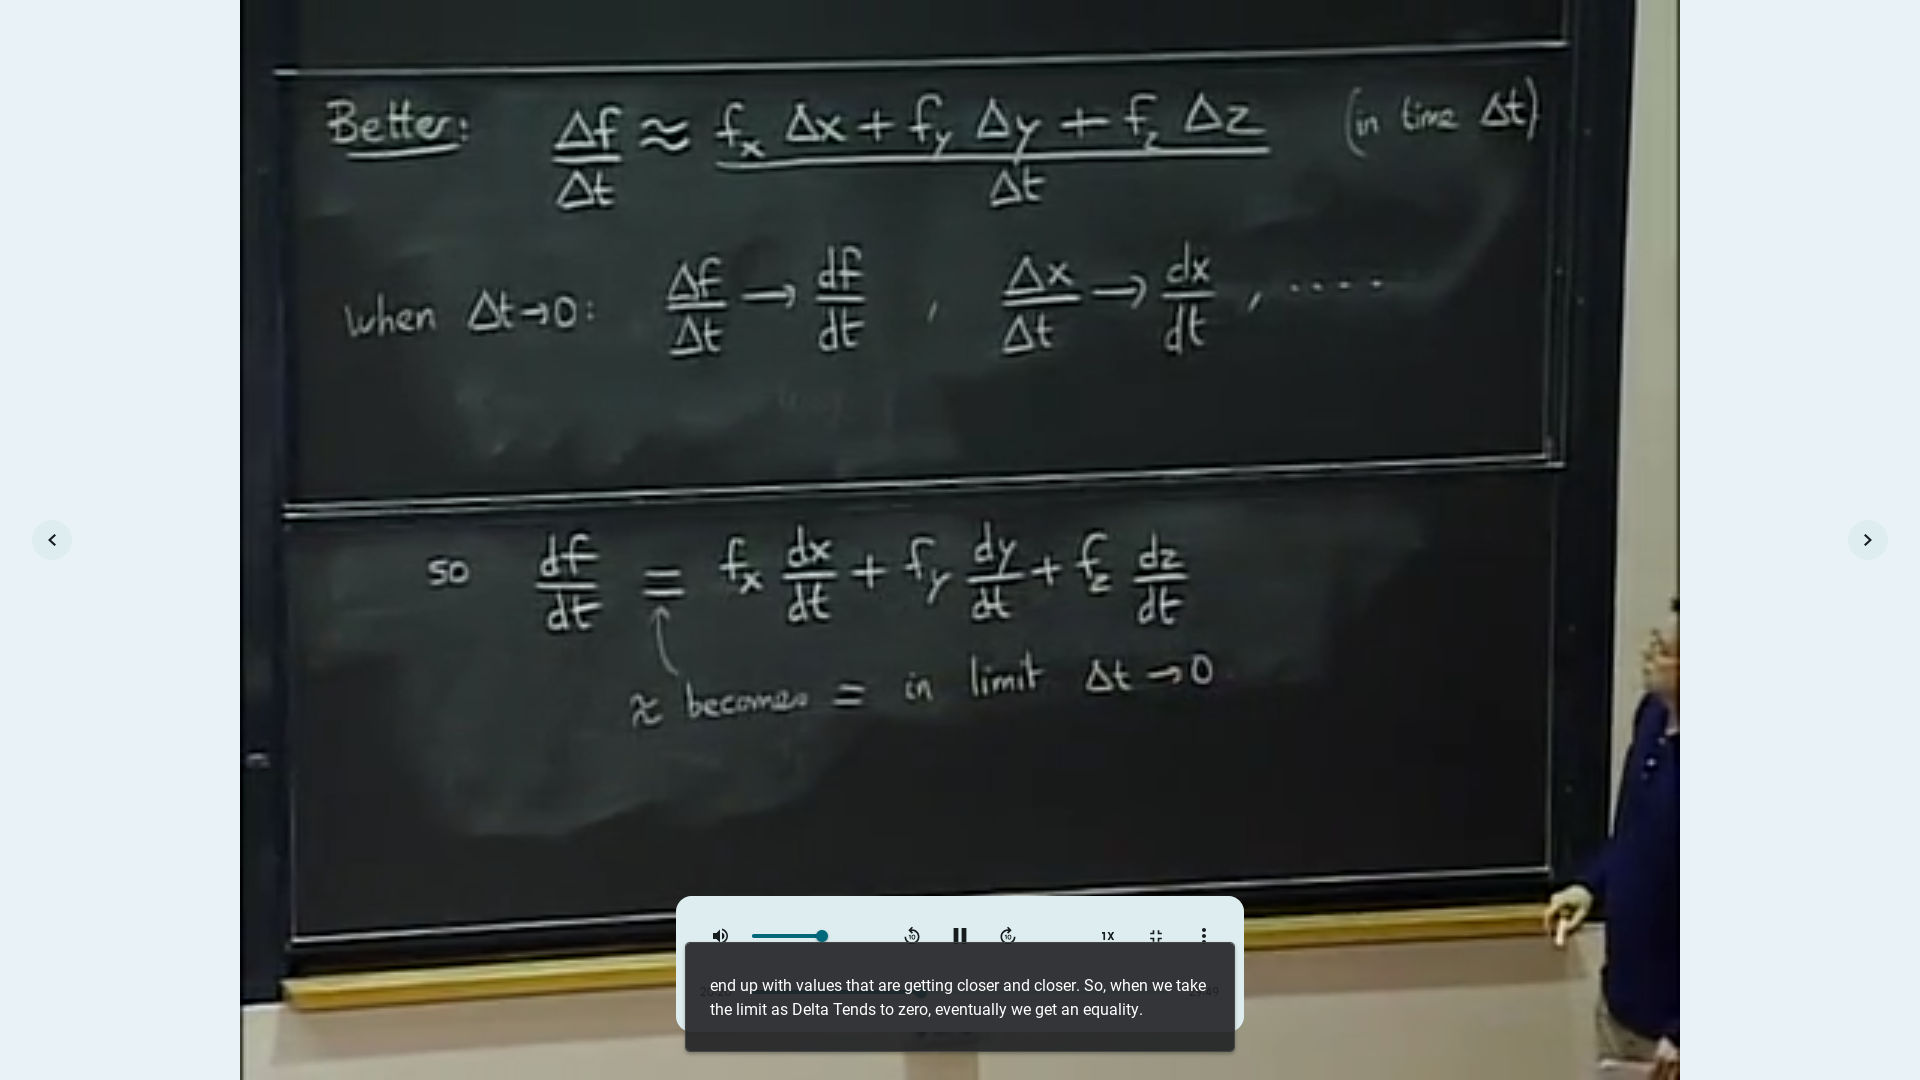 Better: Δf/Δt ≈ (f_x Δx + f_y Δy + f_z Δz)/Δt (in time Δt)
when Δt→0: Δf/Δt → df/dt , Δx/Δt → dx/dt , ....
so df/dt = f_x dx/dt + f_y dy/dt + f_z dz/dt
≈ becomes = in limit Δt → 0
10 10 1X
end up with values that are getting closer and closer. So, when we take
the limit as Delta Tends to zero, eventually we get an equality.